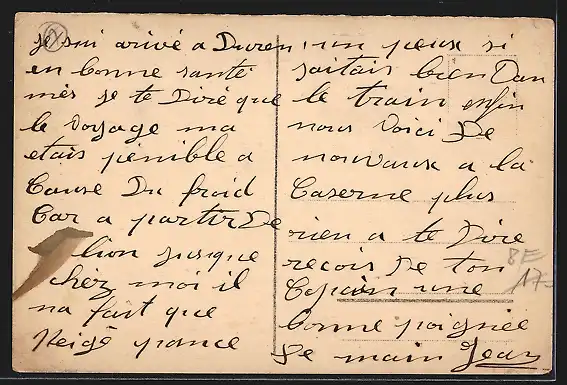 je sui arivé a Duren
en bonne santé
mès je te Diré que
le voyage ma
etais pénible a
Cause Du froid
Car a partir De
lion jusque
chéz moi il
na fait que
Neigé pance
un peux si
saitais bien Dan
le train enfin
nous voici De
nouvaux a la
Caserne plus
rien a te Dire
recois De ton
Copain une
bonne poignée
De main Jean
8E
17-